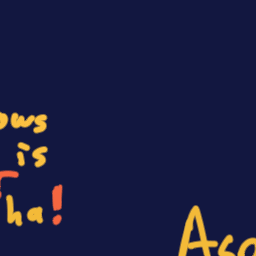 ows
is
ha!
Aso